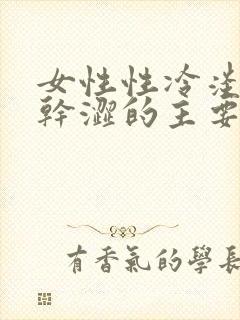 女性性冷淡
幹澀的主要
有香氣的學長